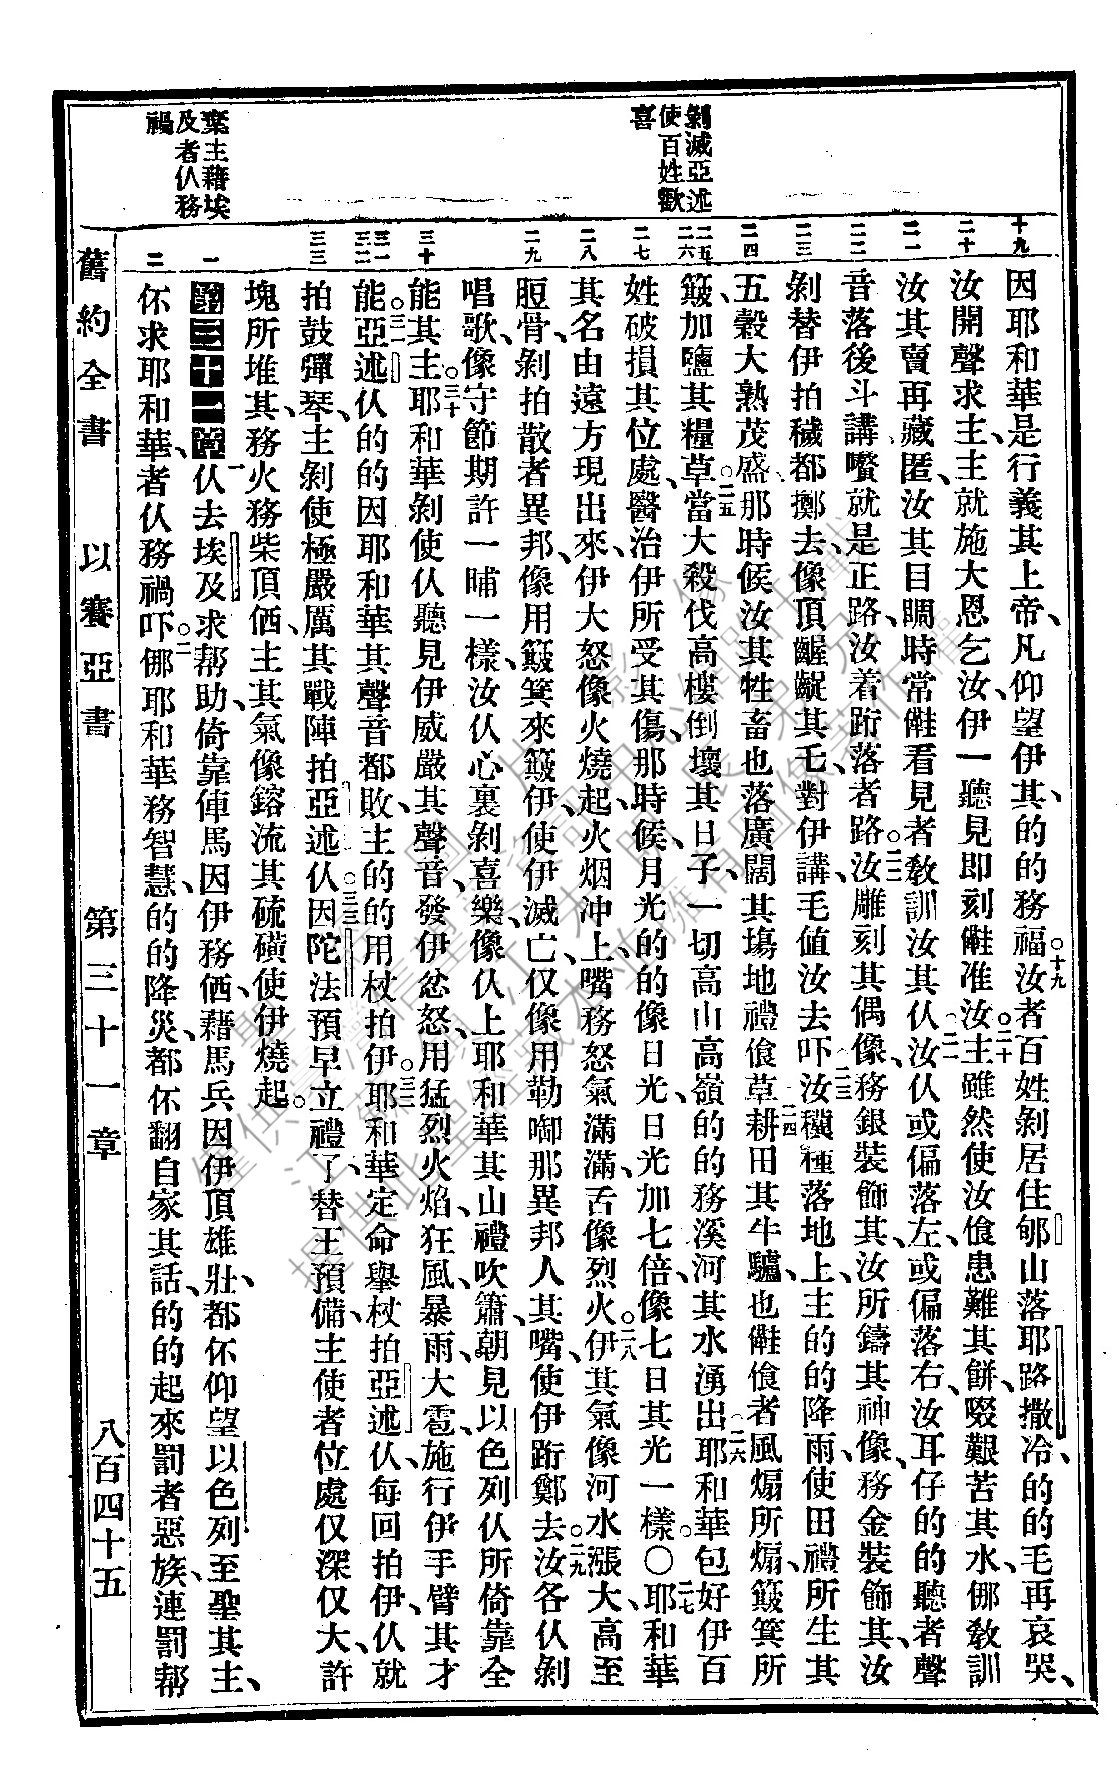 剝滅亞述
使百姓歡
喜
棄主藉埃
及者仈務
禍
十九
二十
二一
二二
二三
二四
二五
二六
二七
二八
二九
三十
三一
三二
三三
一
二
因耶和華是行義其上帝、凡仰望伊其的的務福、○十九汝者百姓剝居住郇山落耶路撒冷的的毛再哀哭、
汝開聲求主、主就施大恩乞汝、伊一聽見即刻儺准汝、○二十主雖然使汝飡患難其餅、啜艱苦其水、㑚教訓
汝其賣再藏匿、汝其目睭時常儺看見者教訓汝其仈、○二一汝仈或偏落左、或偏落右、汝耳仔的的聽者聲
音落後斗講、嚽就是正路、汝着跻落者路、○二二汝雕刻其偶像、務銀裝飾其、汝所鑄其神像、務金裝飾其、汝
剝替伊拍穢、都擲去、像頂齷齪其乇、對伊講、毛値汝去吓、○二三汝穬種落地上、主的的降雨、使田禮所生其
五穀大熟茂盛、那時候汝其牲畜也落廣闊其塲地禮飡草、○二四耕田其牛驢、也儺飡者風煽所煽、簸箕所
簸、加鹽其糧草、○二五當大殺伐高樓倒壞其日子、一切高山高嶺的的務溪河其水湧出、○二六耶和華包好伊百
姓破損其位處、醫治伊所受其傷、那時候、月光的的像日光、日光加七倍、像七日其光一樣。○二七耶和華
其名由遠方現出來、伊大怒像火燒起、火烟沖上、嘴務怒氣滿滿、舌像烈火、○二八伊其氣像河水漲大、高至
脰骨、剝拍散者異邦、像用簸箕來簸伊、使伊滅亡、仅像用勒啣那異邦人其嘴、使伊跻鄭去、○二九汝各仈剝
唱歌、像守節期許一晡一樣、汝仈心裏剝喜樂、像仈上耶和華其山禮吹簫、朝見以色列仈所倚靠全
能其主、○三十耶和華剝使仈聽見伊威嚴其聲音、發伊忿怒、用猛烈火焰、狂風、暴雨、大雹、施行伊手臂其才
能、○三一亞述仈的的因耶和華其聲音都敗、主的的用杖拍伊、○三二耶和華定命舉杖拍亞述仈、每回拍伊、仈就
拍鼓彈琴、主剝使極嚴厲其戰陣拍亞述仈、○三三因陀法預早立禮了、替王預備、主使者位處仅深仅大、許
塊所堆其、務火務柴頂㑚、主其氣像鎔流其硫磺使伊燒起。
第三十一章 一仈去埃及求帮助、倚靠俥馬、因伊務㑚、藉馬兵、因伊頂雄壯、都伓仰望以色列至聖其主、
伓求耶和華、者仈務禍吓、○二㑚耶和華務智慧、的的降災、都伓翻自家其話、的的起來罰者惡族、連罰帮
舊約全書 以賽亞書 第三十一章 八百四十五